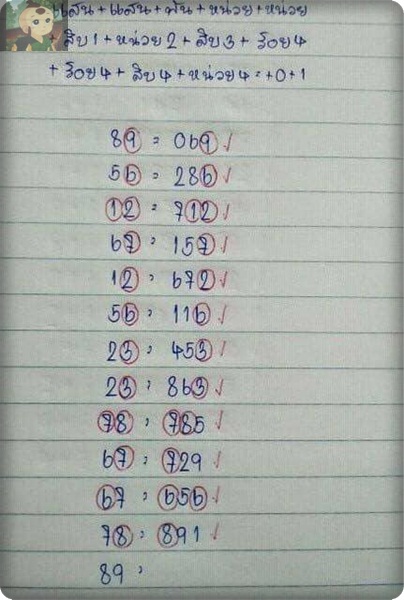 แสน + แสน + พัน + หน่วย + หน่วย
+ สิบ 1 + หน่วย 2 + สิบ 3 + ร้อย 4
+ ร้อย 4 + สิบ 4 + หน่วย 4 = +0+1
89 = 069 ✓
56 = 286 ✓
12 = 712 ✓
67 = 157 ✓
12 = 672 ✓
56 = 116 ✓
23 = 453 ✓
23 = 863 ✓
78 = 785 ✓
67 = 729 ✓
67 = 656 ✓
78 = 891 ✓
89 =